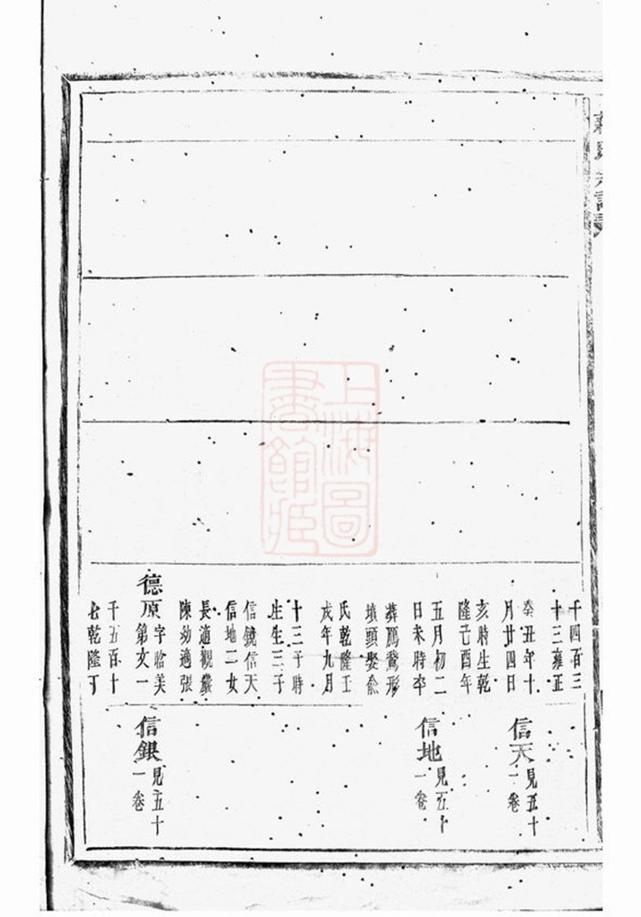 千四百三
十三雍正
癸丑年十
月廿四日
亥時生乾
隆己酉年
五月初二
日未時卒
形
墳頭娶俞
氏乾隆壬
戌年九月
十三子時
生生三子
信鏡信天
信地二女
長適觀巖
陳幼適張
德原字美
第文一
千五百十
七乾隆丁
信天見五十
一卷
信地見五十
一卷
信銀見五十
一卷
上海圖
書館藏